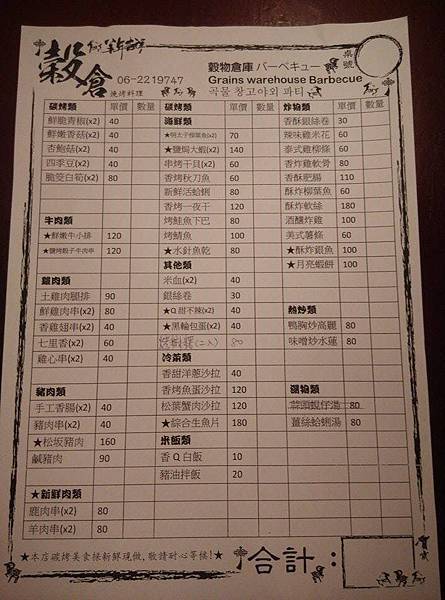 穀倉
燒烤料理
06-2219747
穀物倉庫 バーベキュー
Grains warehouse Barbecue
곡물 창고야외 파티
桌號
碳烤類 單價 數量
鮮脆青椒(x2) 40
鮮嫩香菇(x2) 40
杏鮑菇(x2) 40
四季豆(x2) 40
脆筊白筍(x2) 80
牛肉類
★鮮嫩牛小排 120
★鹽烤骰子牛肉串 120
雞肉類
土雞肉腿排 90
鮮雞肉串(x2) 80
香雞翅串(x2) 40
七里香(x2) 60
雞心串(x2) 40
豬肉類
手工香腸(x2) 40
豬肉串(x2) 40
★松坂豬肉 160
鹹豬肉 90
★新鮮肉類
鹿肉串(x2) 80
羊肉串(x2) 80
碳烤類 單價 數量
海鮮類
★明太子柳葉魚(x2) 70
★鹽焗大蝦(x2) 140
串烤干貝(x2) 60
香烤秋刀魚 60
新鮮活蛤蜊 80
香烤一夜干 120
烤鮭魚下巴 80
烤鯖魚 100
★水針魚乾 80
其他類
米血(x2) 40
銀絲卷 30
★Q甜不辣(x2) 40
★黑輪包蛋(x2) 40
(二入) 80
冷菜類
香甜洋蔥沙拉 40
香烤魚蛋沙拉 120
松葉蟹肉沙拉 120
★綜合生魚片 180
米飯類
香Q白飯 10
豬油拌飯 20
炸物類 單價 數量
香酥銀絲卷 30
辣味雞米花 60
泰式雞柳條 60
香炸雞軟骨 80
香酥肥腸 110
酥炸柳葉魚 60
酥炸軟絲 180
酒釀炸雞 100
美式薯條 60
★酥炸銀魚 100
★月亮蝦餅 100
熱炒類
鴨胸炒高麗 80
味噌炒水蓮 80
湯物類
蒜頭蜆仔湯 80
薑絲蛤蜊湯 80
★本店碳烤美食採新鮮現做,敬請耐心等候!★
合計: